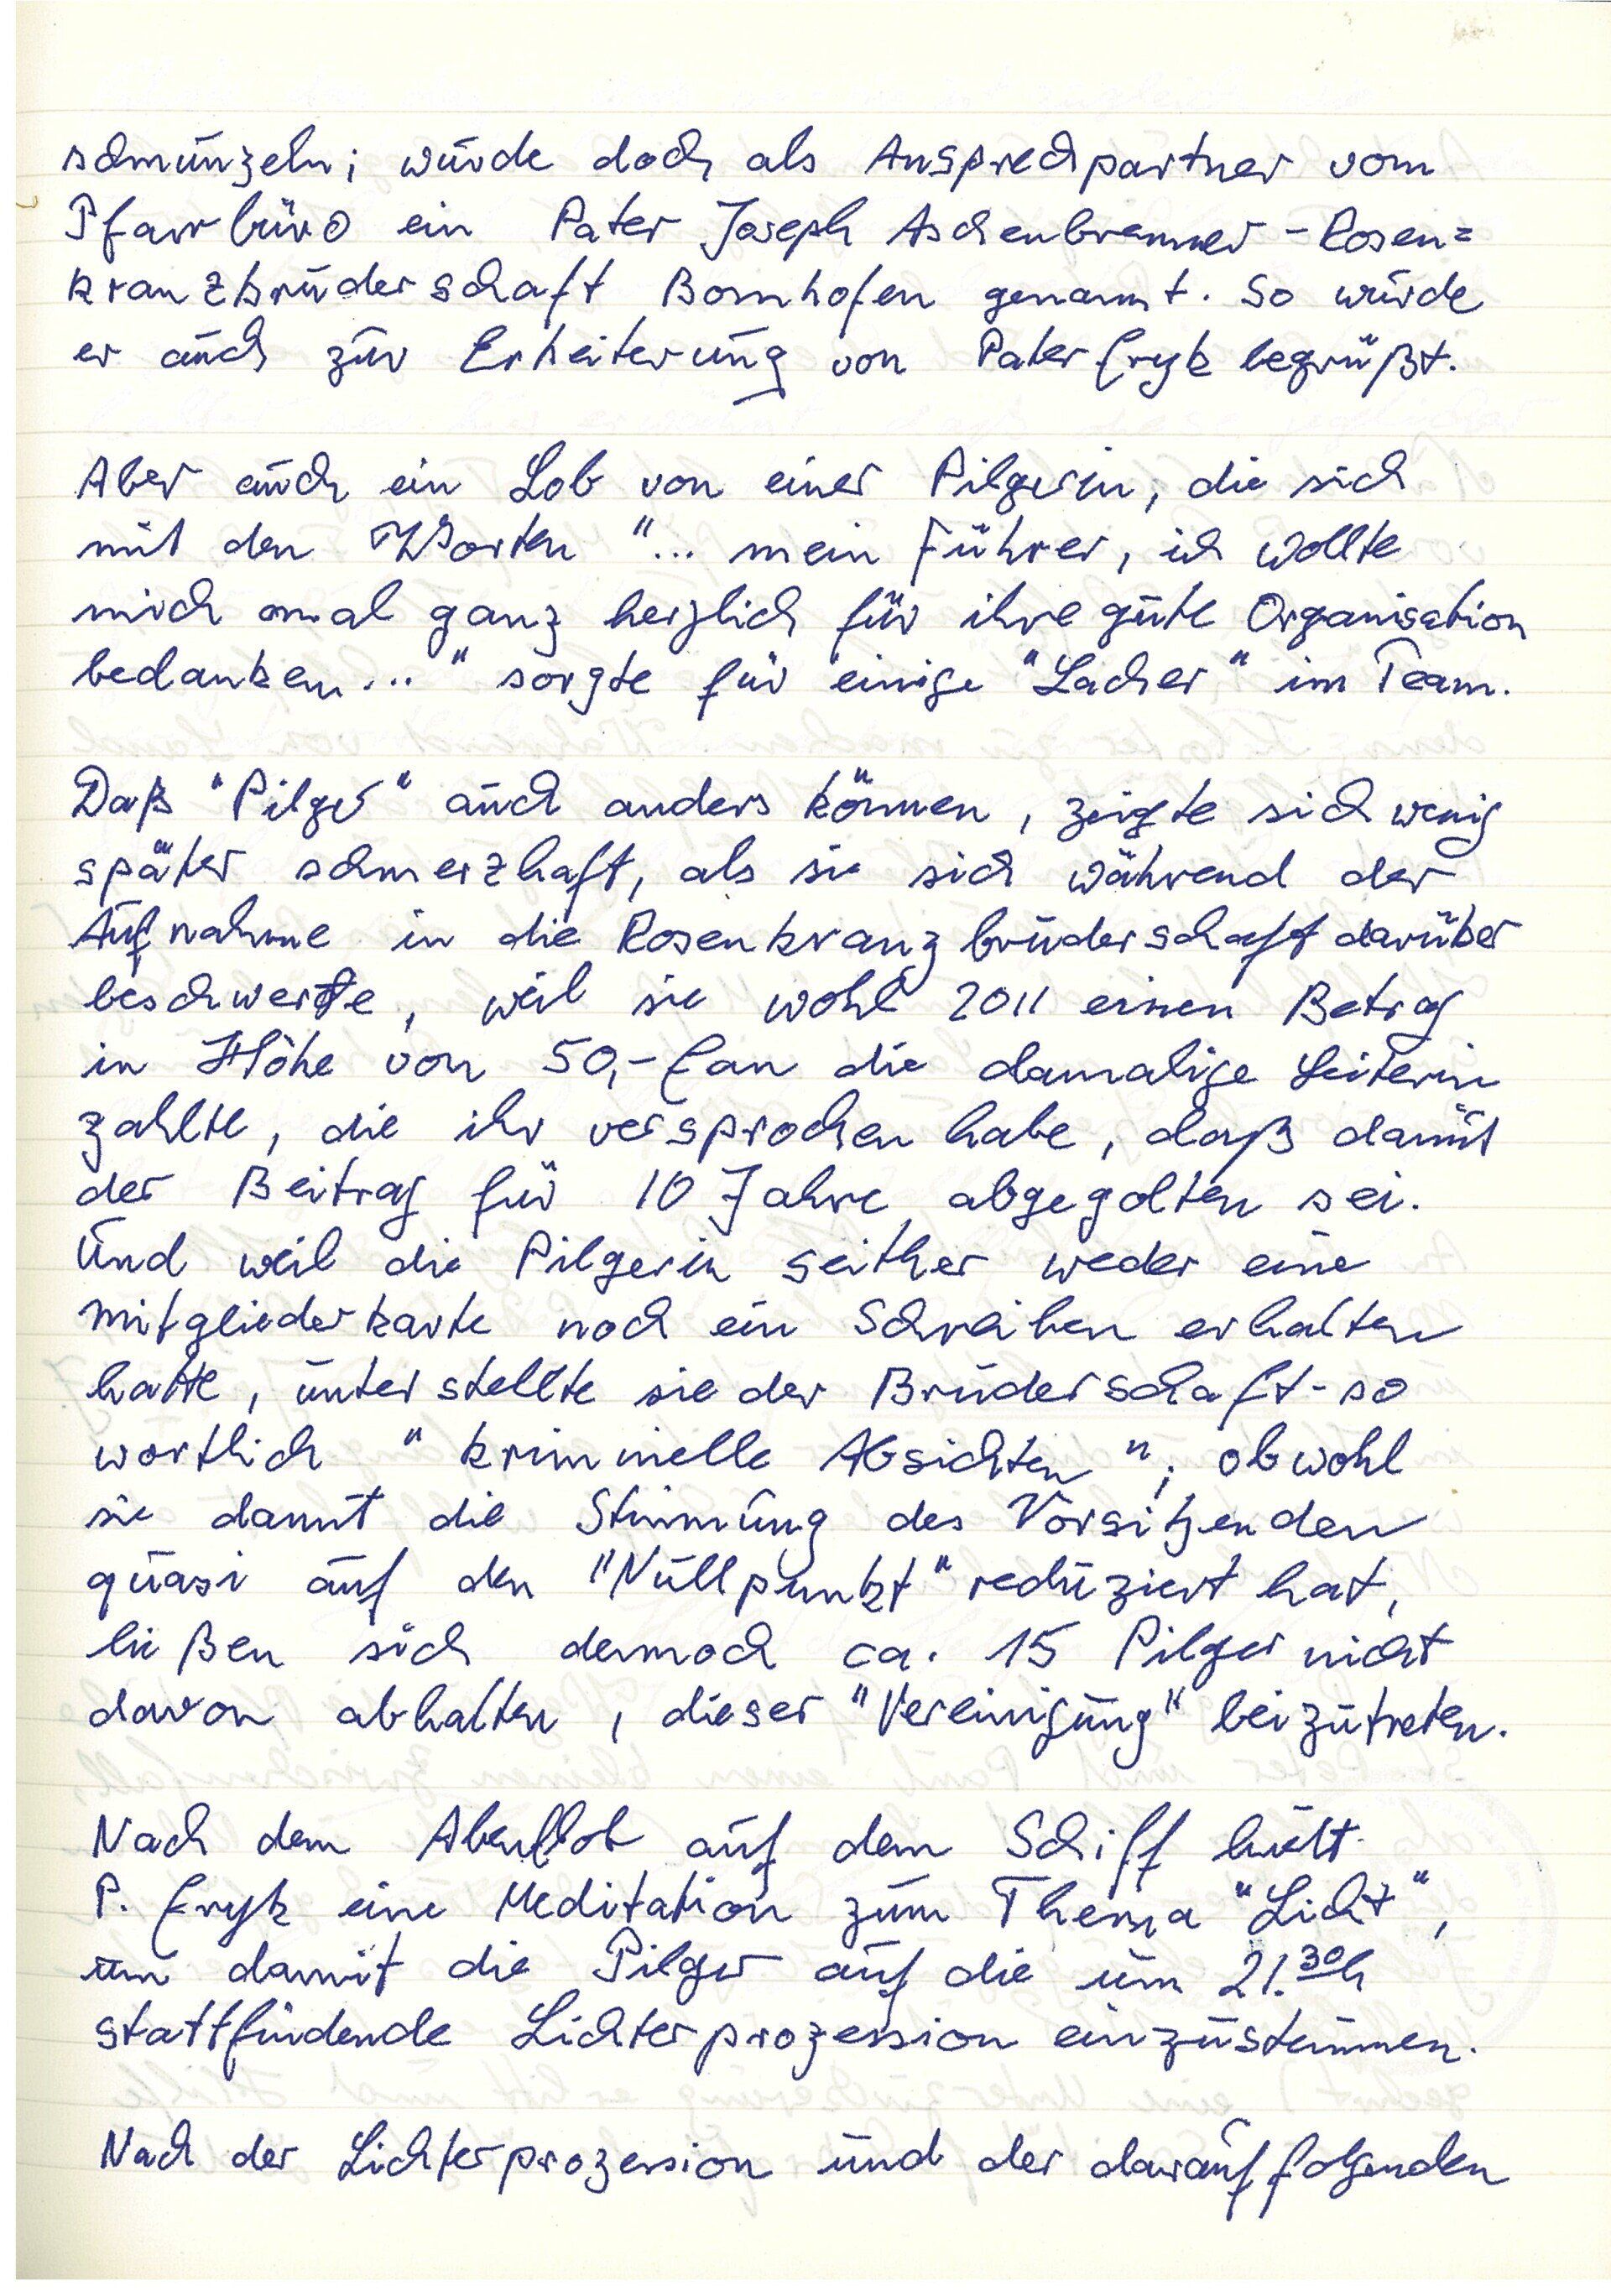 schmunzeln; wurde doch als Ansprechpartner vom
Pfarrbüro ein Pater Joseph Aschenbrenner - Rosen=
kranzbruderschaft Bornhofen genannt. So wurde
er auch zur Erheiterung von Pater Eryk begrüßt.
Aber auch ein Lob von einer Pilgerin, die sich
mit den Worten "... mein Führer, ich wollte
mich mal ganz herzlich für ihre gute Organisation
bedanken..." sorgte für einige "Lacher" im Team.
Daß "Pilger" auch anders können, zeigte sich wenig
später schmerzhaft, als sie sich während der
Aufnahme in die Rosenkranzbruderschaft darüber
beschwerte, weil sie wohl 2011 einen Betrag
in Höhe von 50,- € an die damalige Leiterin
zahlte, die ihr versprochen habe, daß damit
der Beitrag für 10 Jahre abgegolten sei.
Und weil die Pilgerin seither weder eine
Mitgliederkarte noch ein Schreiben erhalten
hatte, unterstellte sie der Bruderschaft - so
wortlich "kriminelle Absichten"; obwohl
sie damit die Stimmung des Vorsitzenden
quasi auf den "Nullpunkt" reduziert hat,
ließen sich dennoch ca. 15 Pilger nicht
davon abhalten, dieser "Vereinigung" beizutreten.
Nach dem Abendlob auf dem Schiff hielt
P. Eryk eine Meditation zum Thema "Licht",
um damit die Pilger auf die um 21.30h
stattfindende Lichterprozession einzustimmen.
Nach der Lichterprozession und der darauffolgenden